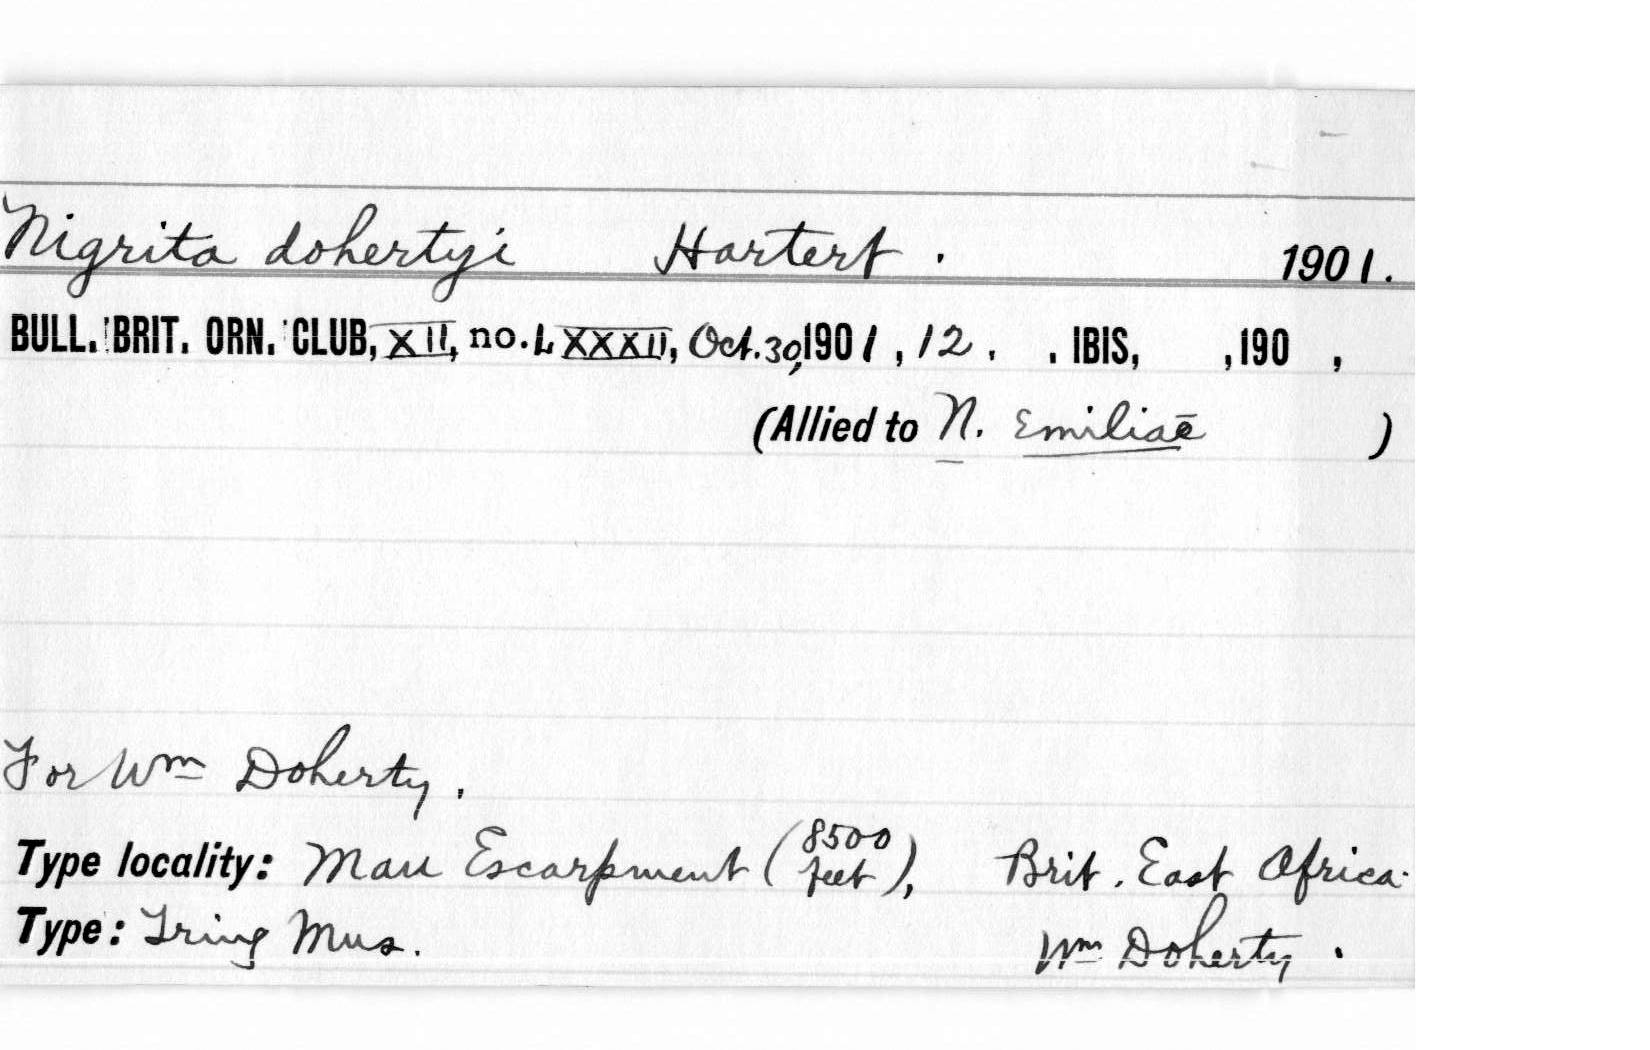 Nigrita dohertyi Hartert . 1901.
BULL. BRIT. ORN. CLUB, XII, no. LXXXII, Oct. 30, 1901, 12. . IBIS, ,190 ,
(Allied to N. Emiliae )
For Wm Doherty.
Type locality: Mau Escarpment (8500 feet), Brit. East Africa.
Type: Tring Mus. Wm Doherty.